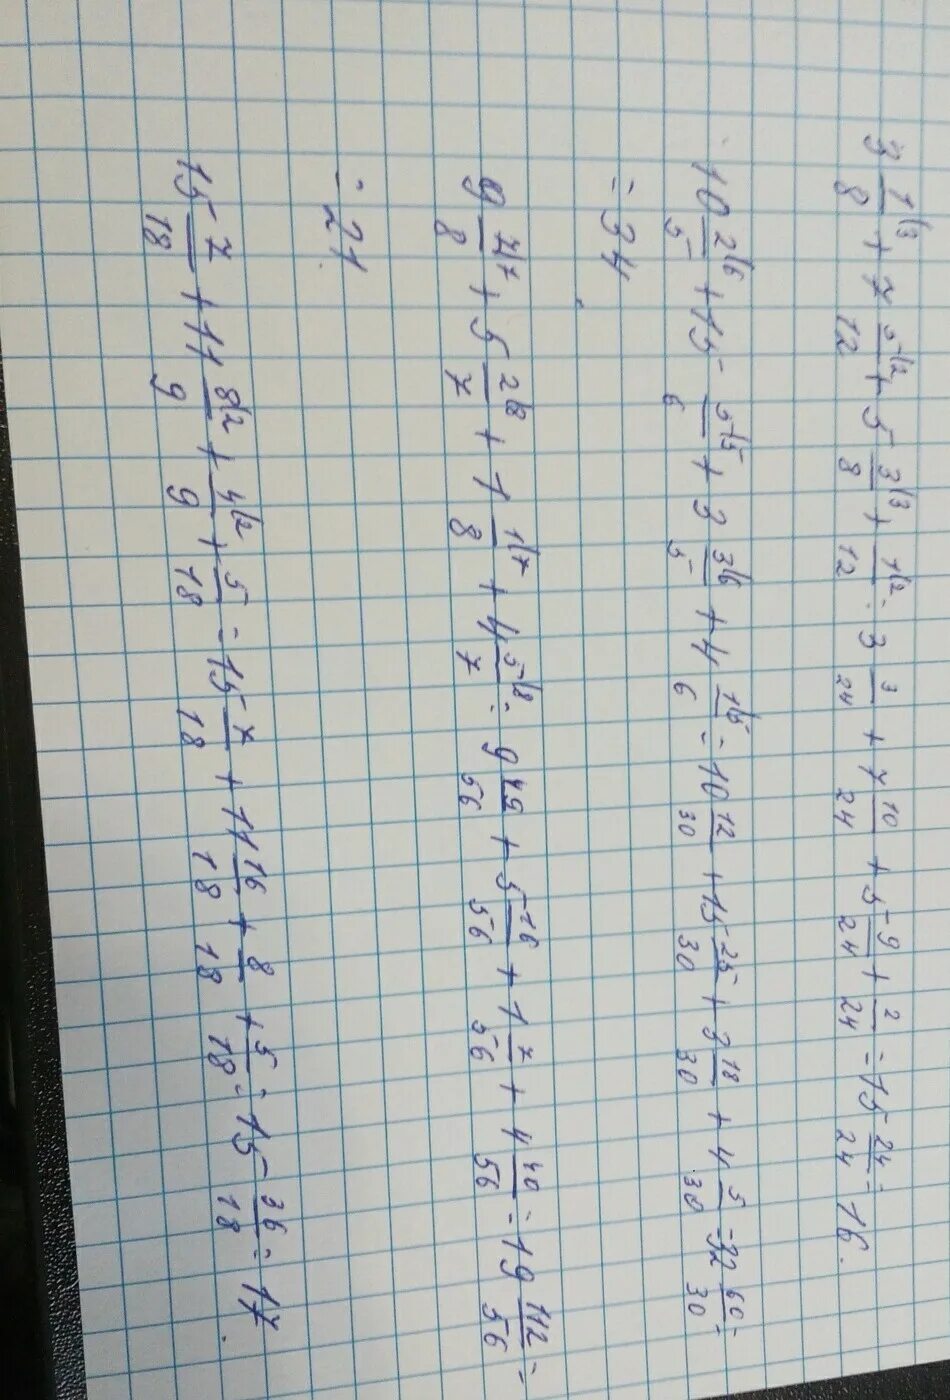 3 1/8 (3 + 7 5/12 (2 + 5 3/8 (3 + 1/12 (2 = 3 3/24 + 7 10/24 + 5 9/24 + 2/24 = 15 24/24 = 16.
10 2/5 (6 + 15 5/6 (5 + 3 3/5 (6 + 4 1/6 (5 = 10 12/30 + 15 25/30 + 3 18/30 + 4 5/30 = 32 60/30 =
= 34
9 7/8 (7 + 5 2/7 (8 + 1 1/8 (7 + 4 5/7 (8 = 9 49/56 + 5 16/56 + 1 7/56 + 4 40/56 = 19 112/56 =
= 21
15 7/18 + 11 8/9 (2 + 4/9 (2 + 5/18 = 15 7/18 + 11 16/18 + 8/18 + 5/18 = 15 36/18 = 17.